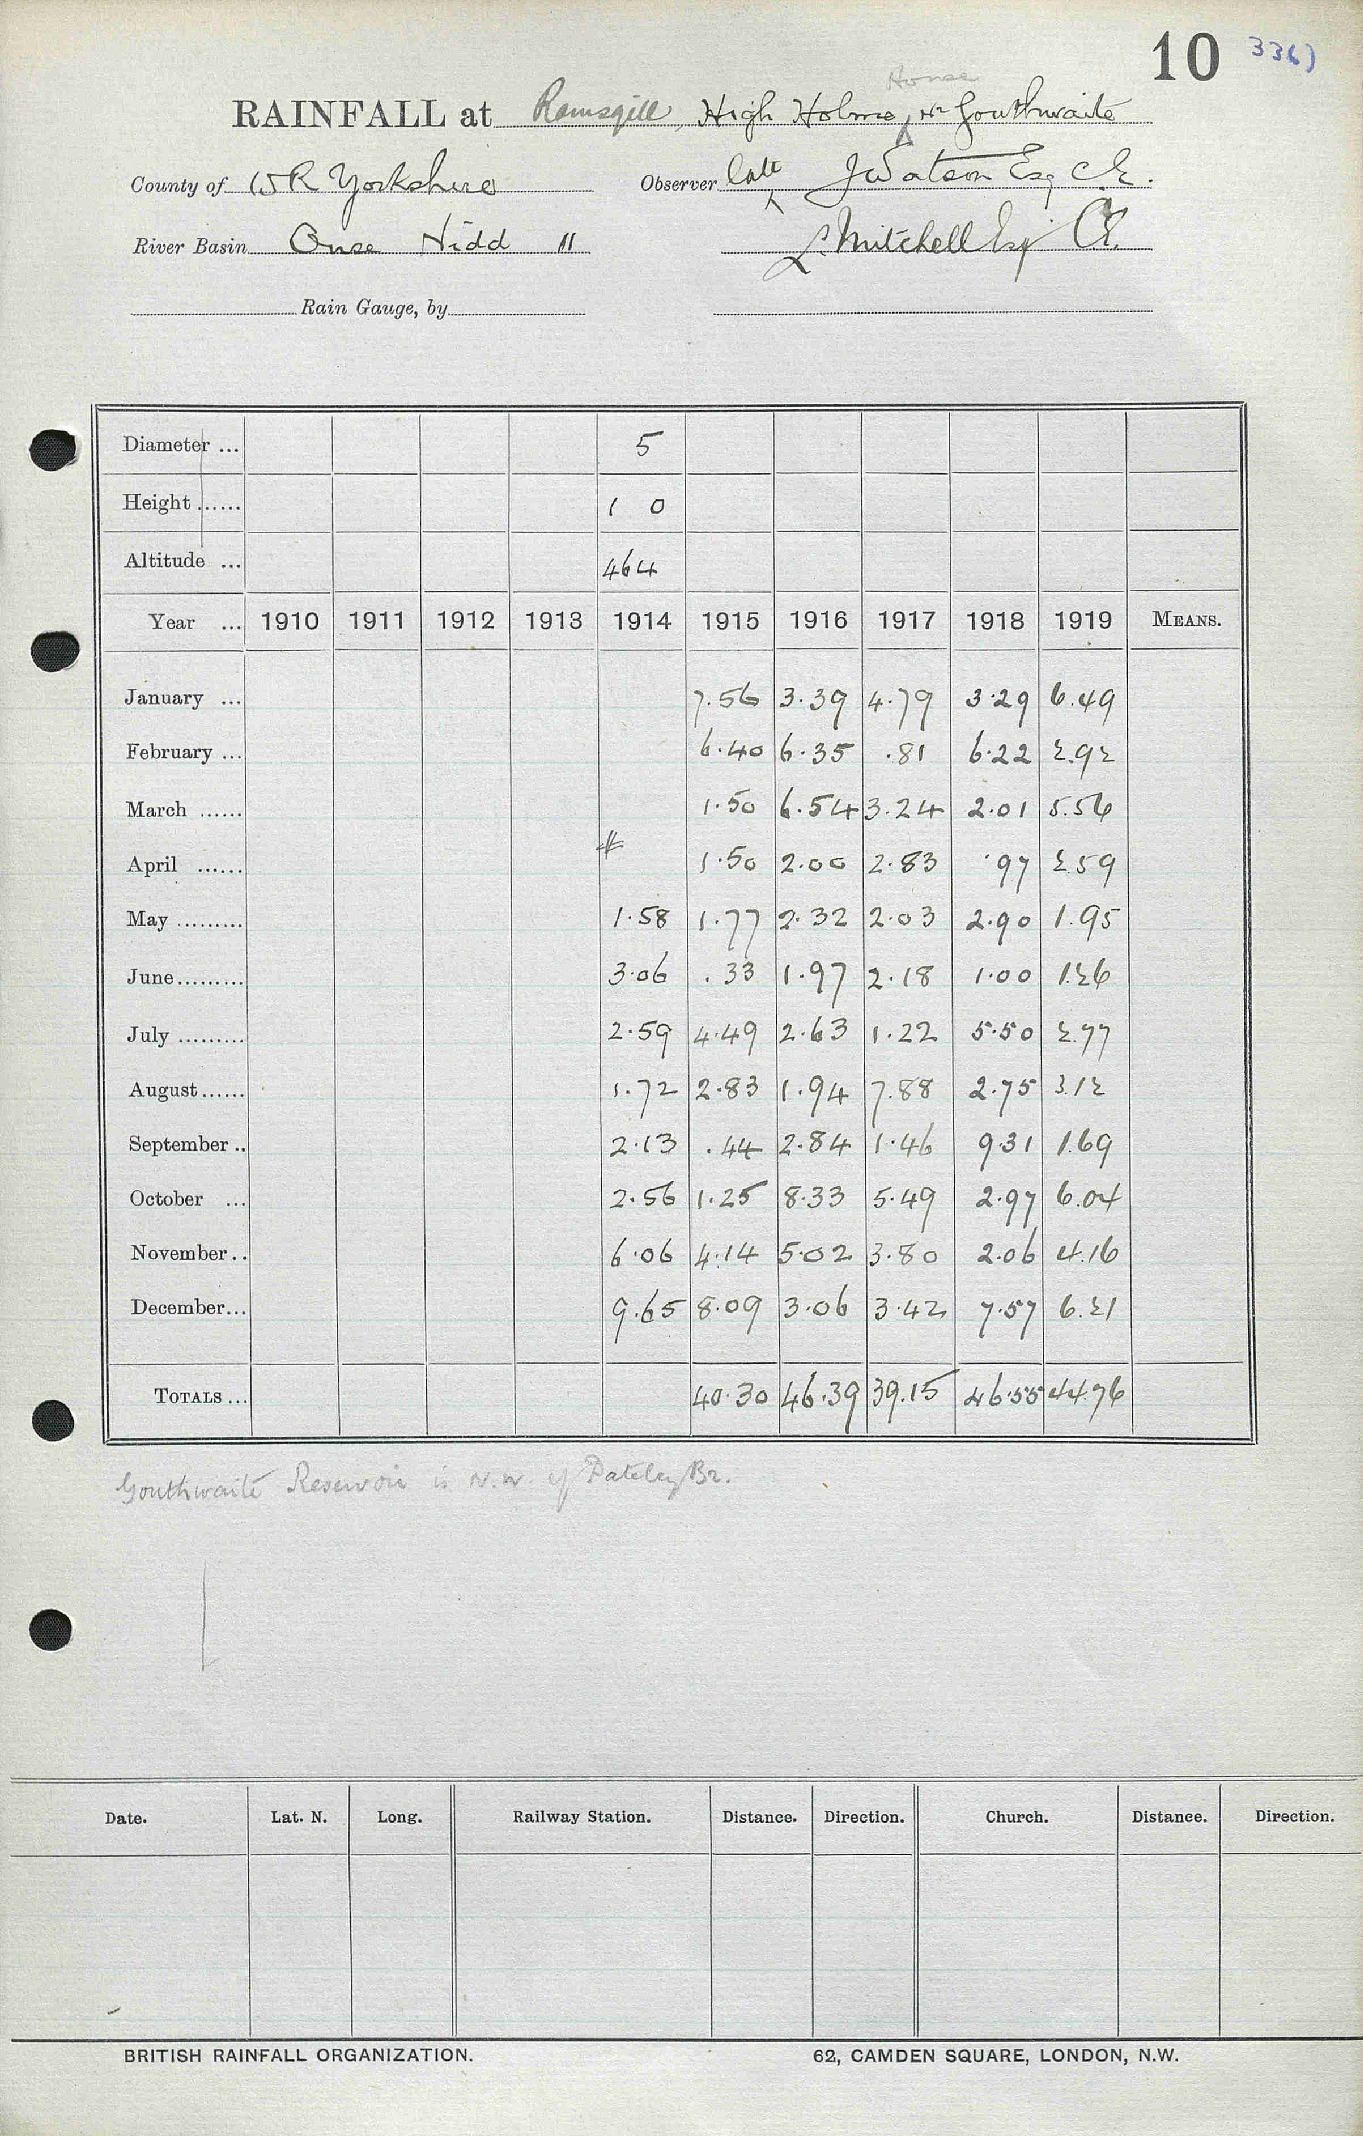 10 336)
House
RAINFALL at Ramsgill, High Holme, Nr Gouthwaite
County of WR Yorkshire Observer late J Watson Esq C.E.
River Basin Ouse Nidd 11 L Mitchell Esq CE.
Rain Gauge, by
Diameter ... 5
Height ...... 1 0
Altitude ... 464
Year ... 1910 1911 1912 1913 1914 1915 1916 1917 1918 1919 MEANS.
January ... 7.56 3.39 4.79 3.29 6.49
February ... 6.40 6.35 .81 6.22 2.92
March ...... 1.50 6.54 3.24 2.01 5.56
April ...... 1.50 2.00 2.83 .97 2.59
May ......... 1.58 1.77 2.32 2.03 2.90 1.95
June......... 3.06 .33 1.97 2.18 1.00 1.26
July ......... 2.59 4.49 2.63 1.22 5.50 2.77
August...... 1.72 2.83 1.94 7.88 2.75 3.12
September .. 2.13 .44 2.84 1.46 9.31 1.69
October ... 2.56 1.25 8.33 5.49 2.97 6.04
November.. 6.06 4.14 5.02 3.80 2.06 4.16
December... 9.65 8.09 3.06 3.42 7.57 6.21
TOTALS ... 40.30 46.39 39.15 46.55 44.76
Gouthwaite Reservoir is N.W. of Pateley Br.
Date. Lat. N. Long. Railway Station. Distance. Direction. Church. Distance. Direction.
BRITISH RAINFALL ORGANIZATION. 62, CAMDEN SQUARE, LONDON, N.W.